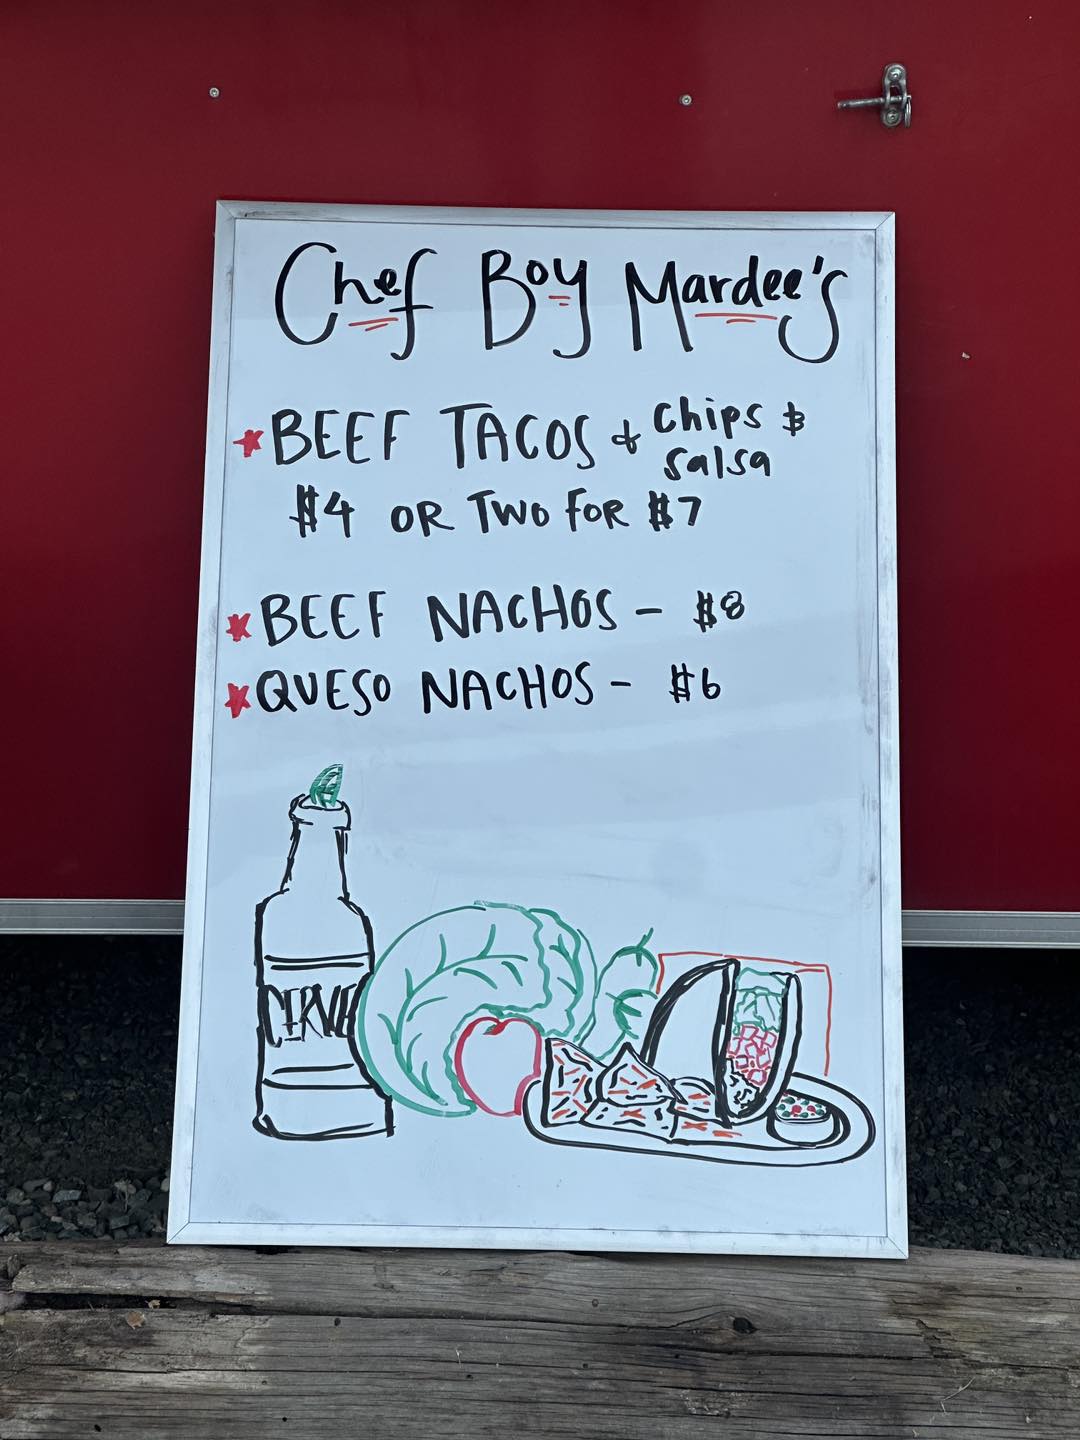 Chef Boy Mardee's
BEEF TACOS & chips &
salsa
$4 OR TWO FOR $7
BEEF NACHOS - $8
QUESO NACHOS - $6